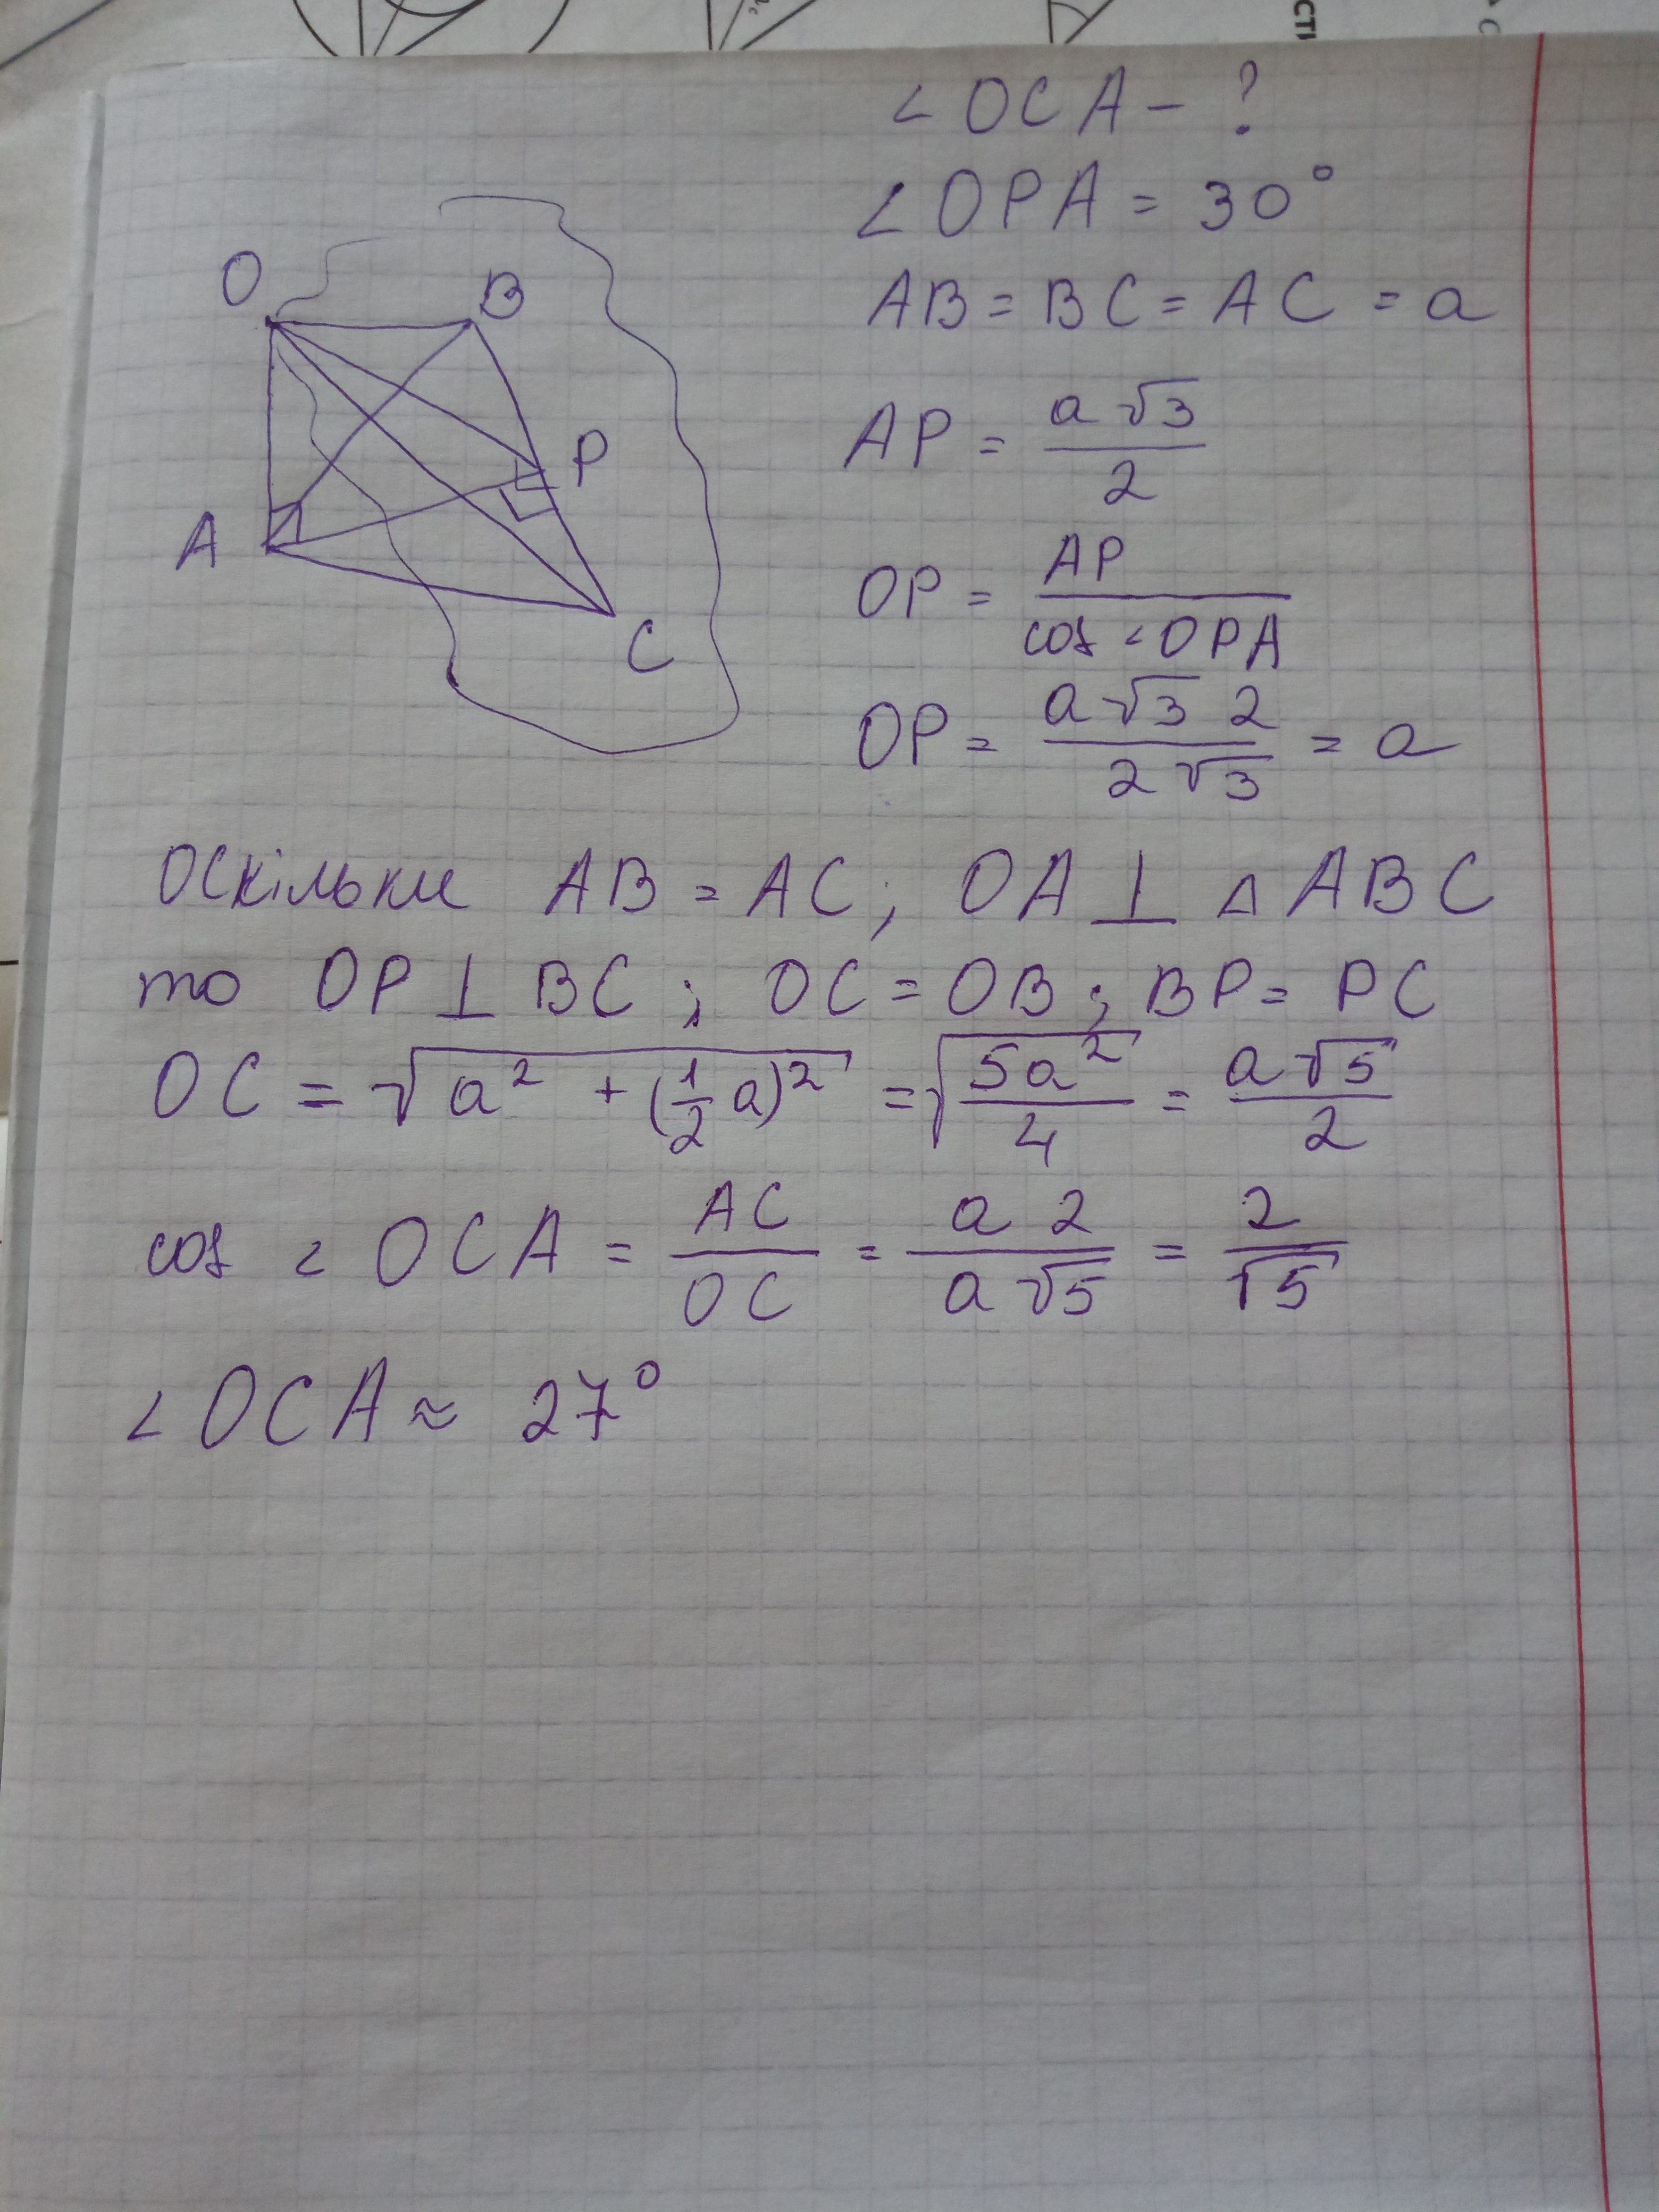 СТІ
∠OCA - ?
∠OPA = 30°
AB = BC = AC = a
O
B
P
A
C
AP = a√3 / 2
OP = AP / cos ∠OPA
OP = a√3 2 / 2√3 = a
Оскільки AB = AC; OA ⊥ △ABC
то OP ⊥ BC; OC = OB; BP = PC
OC = √(a² + (1/2 a)²) = √(5a²/4) = a√5 / 2
cos ∠OCA = AC / OC = a 2 / a√5 = 2 / √5
∠OCA ≈ 27°